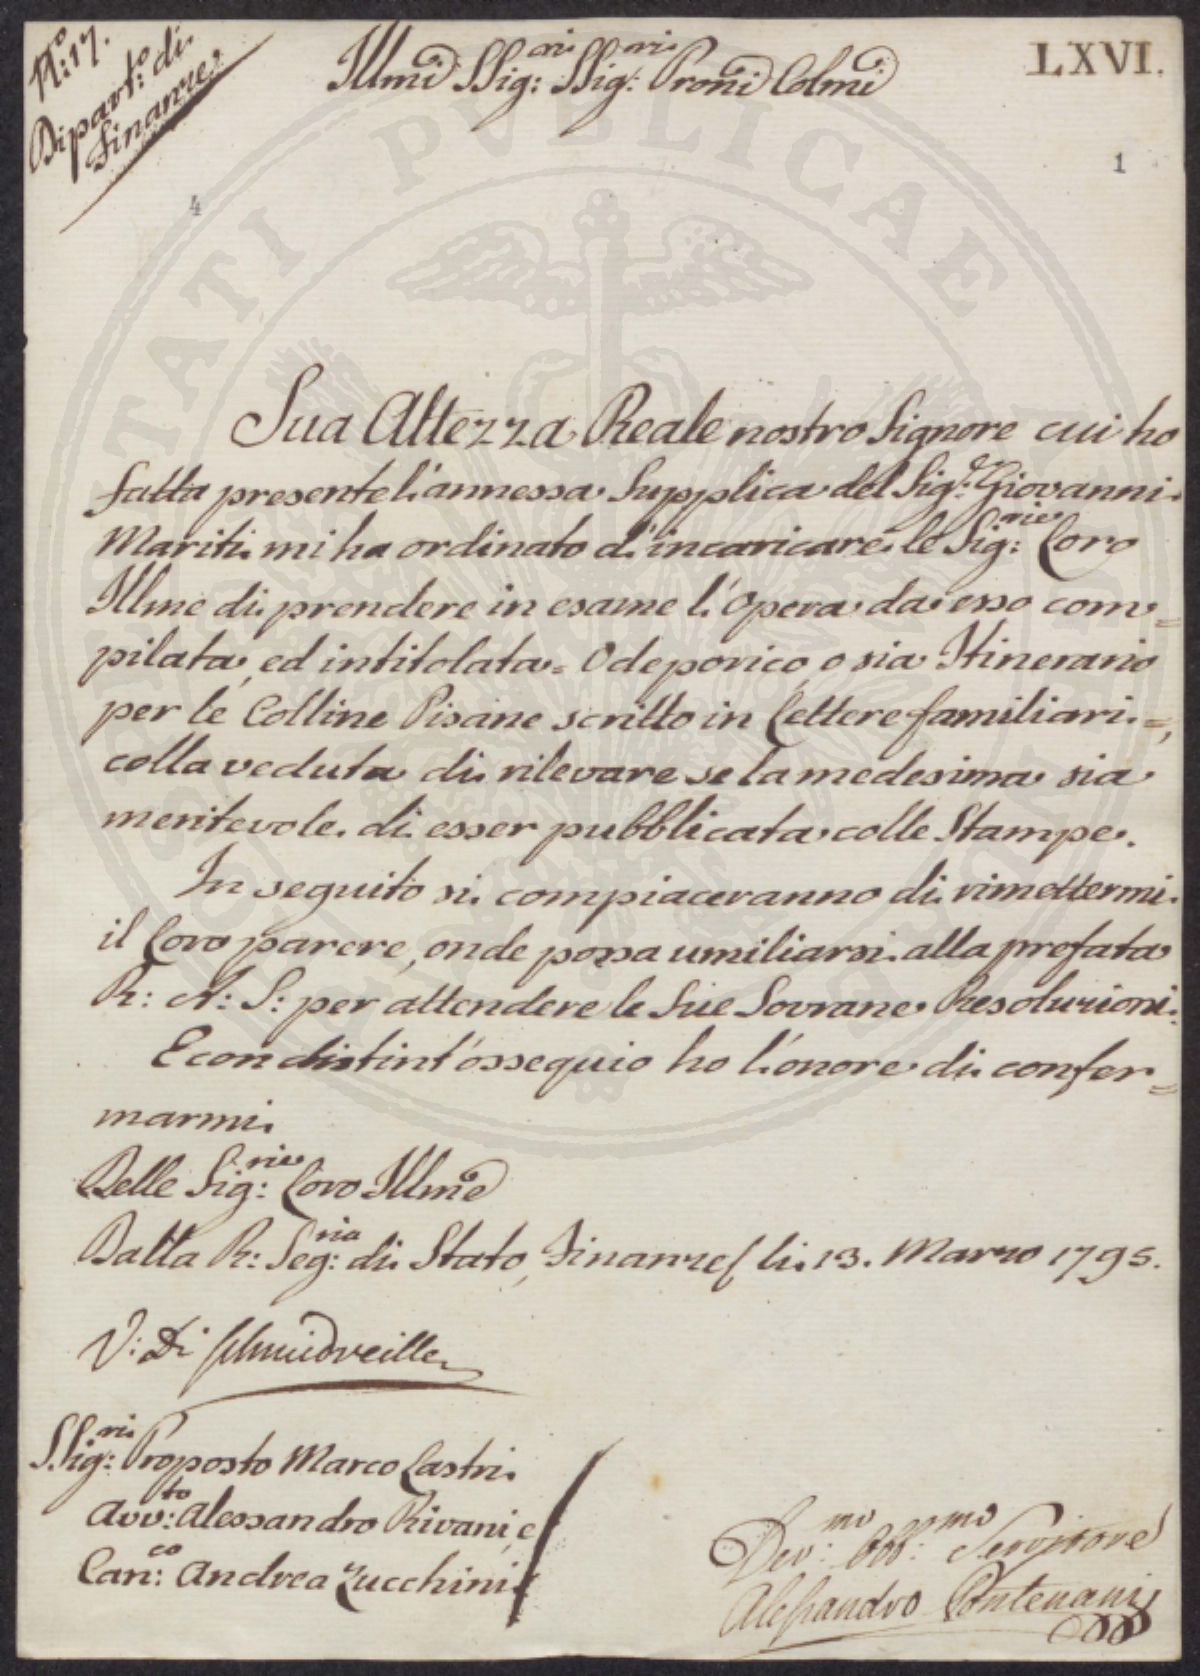 N.o 17.
Dipart.to di
Finanze
Illmi SSig:ri SSig:ri Proñi Colmi
LXVI.
1
4
PVBLICAE
Sua Altezza Reale nostro Signore cui ho
fatta presente l'annessa Supplica del Sig:r Giovanni
Mariti mi ha ordinato d'incaricare le Sig:rie Loro
Illme di prendere in esame l'Opera da esso com=
pilata, ed intitolata= Odeporico, o sia Itinerario
per le Colline Pisane scritto in Lettere familiari=,
colla veduta di rilevare se la medesima sia
meritevole di esser pubblicata colle Stampe.
In seguito si compiaceranno di rimettermi
il Loro parere, onde possa umiliarsi alla prefata
R: A: S: per attendere le Sue Sovrane Resoluzioni.
E con distint'ossequio ho l'onore di confer=
marmi
Delle Sig:rie Loro Illme
Dalla R: Seg:ria di Stato, Finanze li 13. Marzo 1795.
V: Di Schmidveiller
SSig:ri Proposto Marco Lastri
Avv:to Alessandro Rivani, e
Can:co Andrea Zucchini
Dev:mo Obb:mo Servitore
Alessandro Pontenani